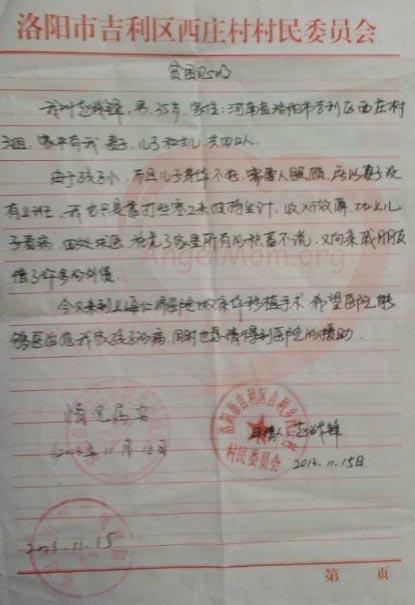 洛阳市吉利区西庄村村民委员会
贫困证明
我叫赵 锋，男，35岁，家住：河南省洛阳市吉利区西庄村
3组，家中有我、妻子、儿子和女儿，共四口人。
由于孩子小，而且儿子身体不好，需要人照顾，所以妻子没
有上班，我也只是靠打些零工来维持生计，收入微薄，加上儿
子看病，四处求医，花光了家里所有的积蓄不说，又向亲戚朋友
借了许多的外债。
今又来到上海仁济医院做肝移植手术，希望医院能
够医治好我家孩子的病，同时也恳请得到医院的援助。
AngelMom.org
情况属实
2013年11月15日
洛阳市吉利区吉利乡西庄村
村民委员会
申请人：赵 锋
2013.11.15日
2013.11.15
第 页